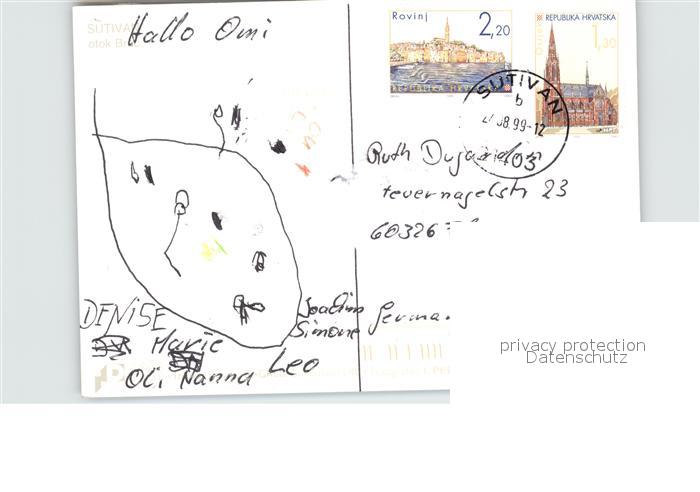 SUTIVAN
otok Br
Hallo Omi
DENISE
Marie
Oli Nanna Leo
Joachim
Simone
Rovinj 2,20
REPUBLIKA HRVATSKA
REPUBLIKA HRVATSKA
Osijek 1,30
SUTIVAN
b
08.99-12
03
Ruth
23
60326
German
privacy protection
Datenschutz